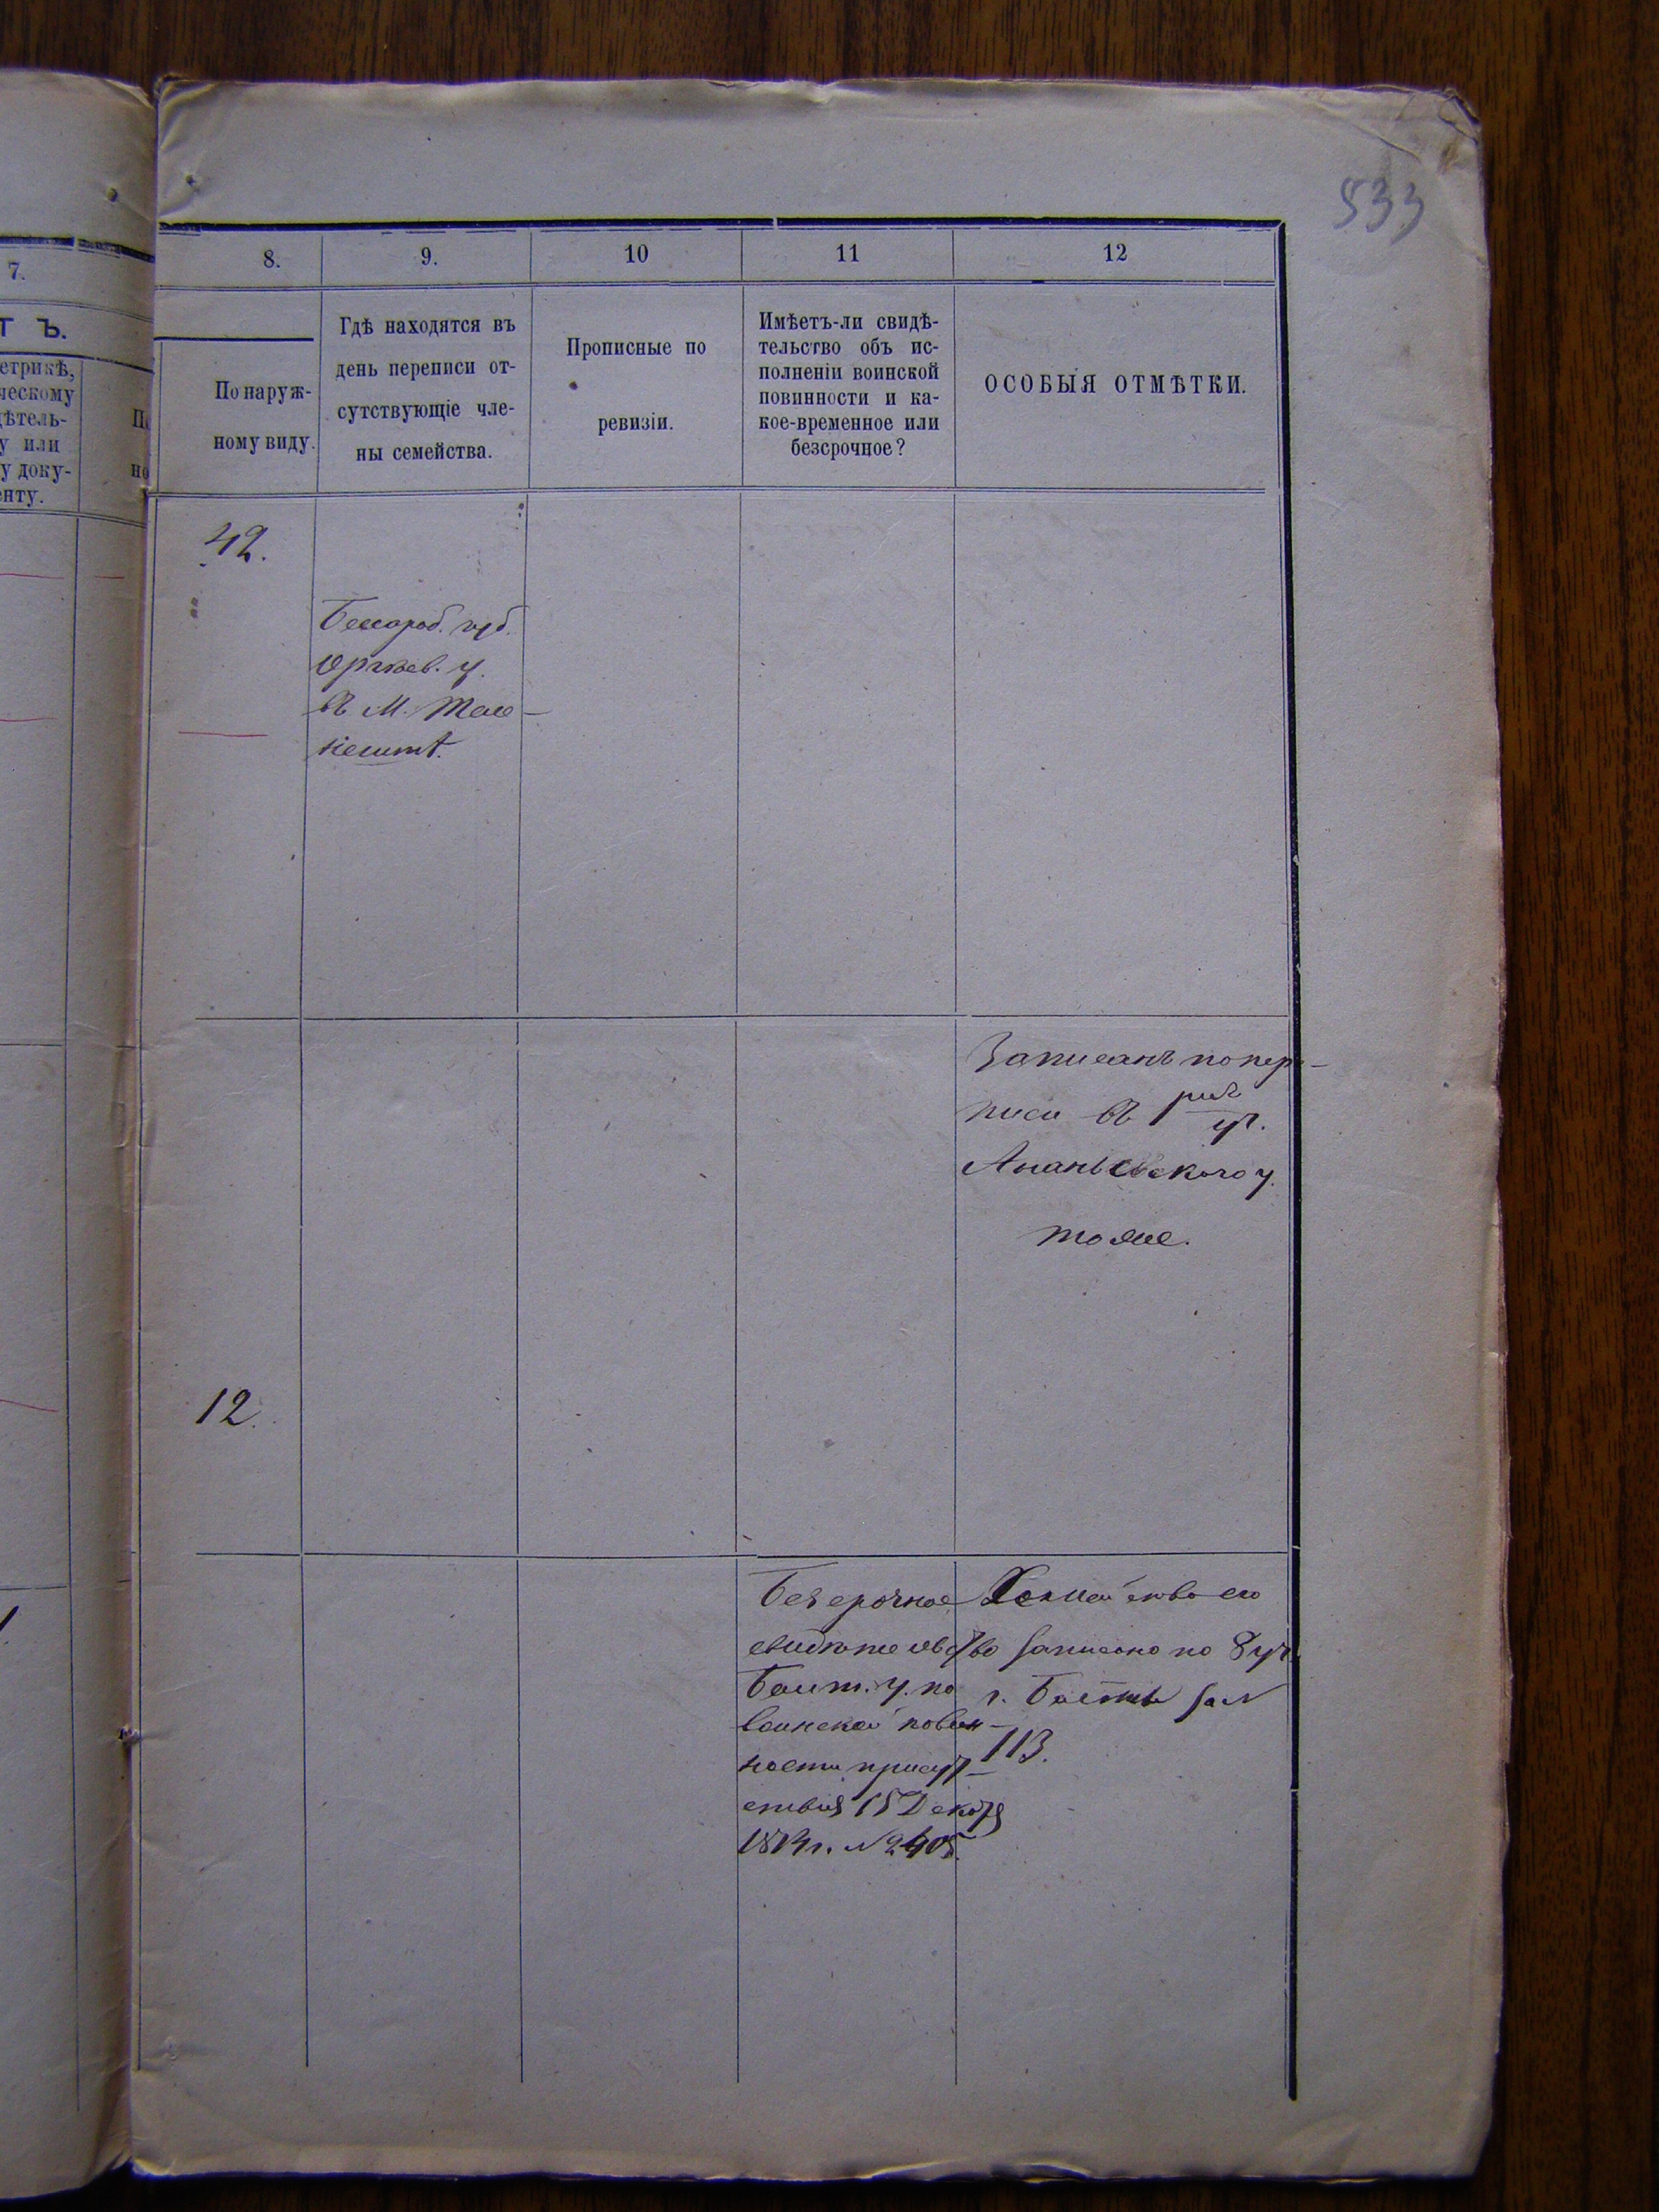 533
7.
8.
9.
10
11
12
Т Ъ.
етрикѣ,
ческому
дѣтель-
у или
у доку-
енту.
По
но
По наруж-
ному виду.
Гдѣ находятся въ
день переписи от-
сутствующіе чле-
ны семейства.
Прописные по
ревизіи.
Имѣетъ-ли свидѣ-
тельство объ ис-
полненіи воинской
повинности и ка-
кое-временное или
безсрочное?
ОСОБЫЯ ОТМѢТКИ.
42.
Бессараб. губ.
Оргѣев. у.
въ м. Теле-
нешт.
Записанъ по пере-
писи въ 1 уч.
Ананьевского у.
тоже.
12.
Безсрочное
свидѣтельство
Балт. у. по
воинской повин-
ности присут-
ствия 15 Декабря
№ 2405.
Семейство его
записано по 8 уч.
г. Балты за №
113.